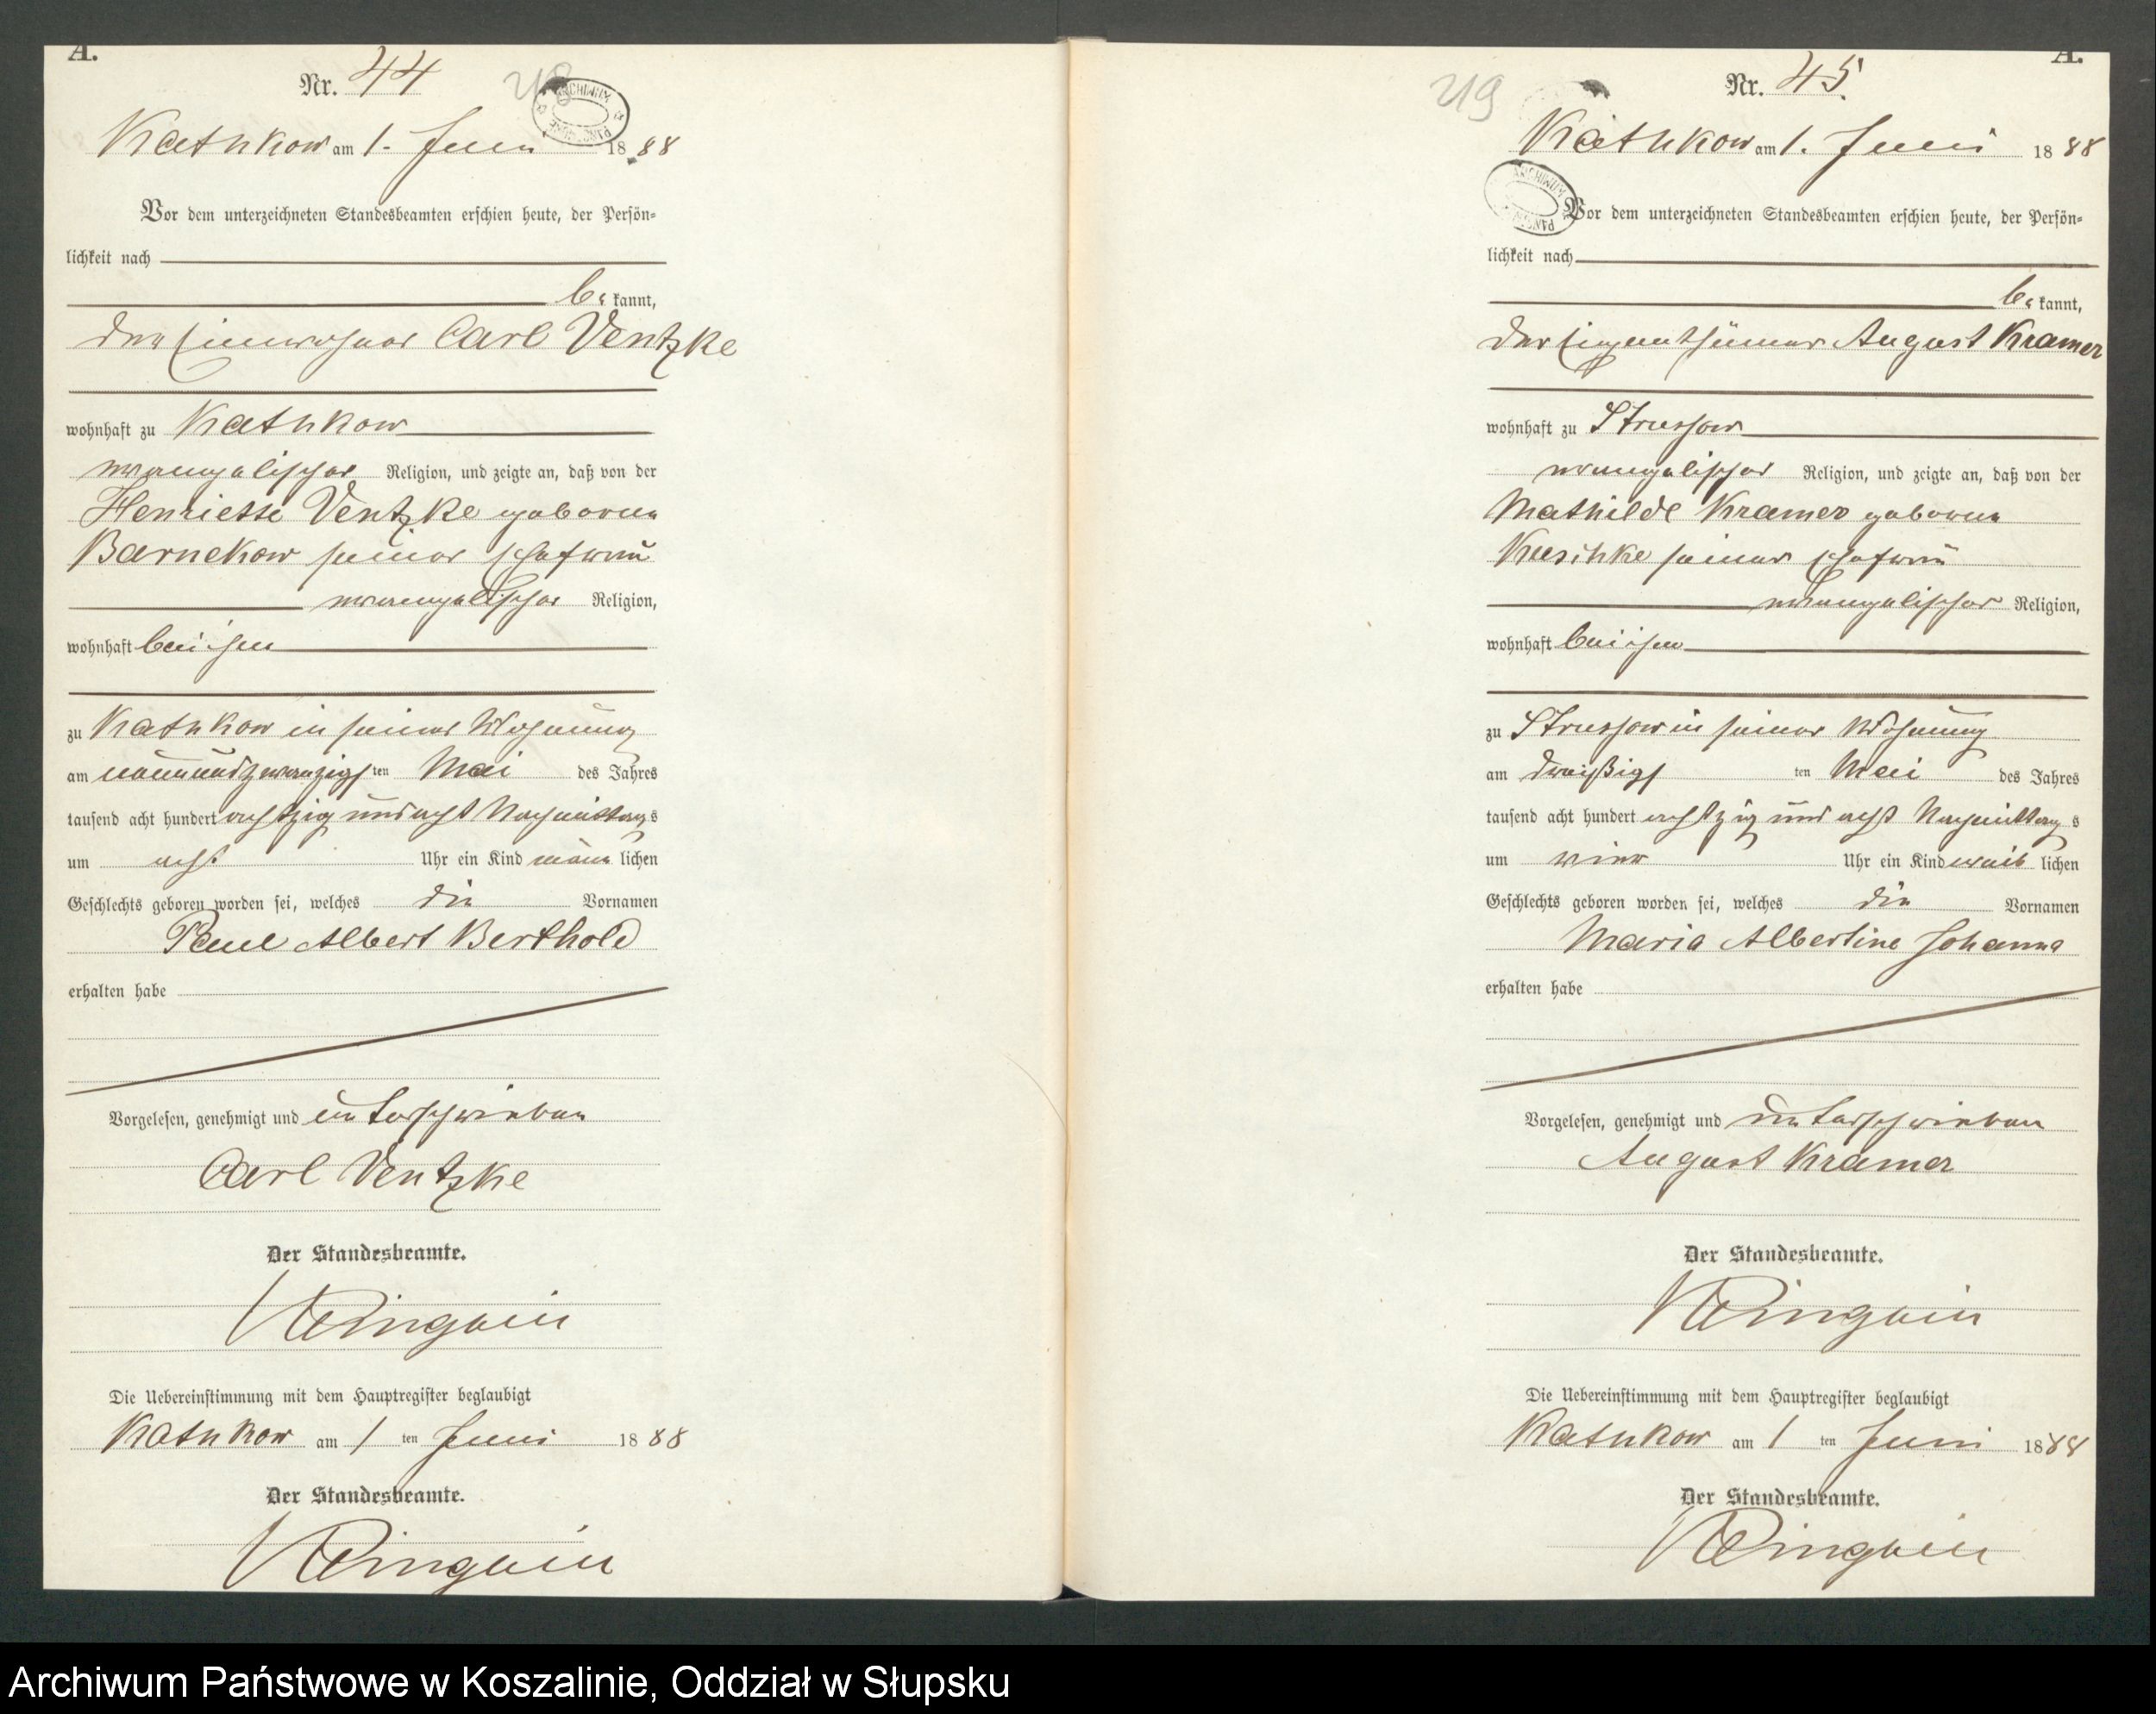 A.
Nr. 44
218
Kathkow am 1. Juni 1888
Vor dem unterzeichneten Standesbeamten erschien heute, der Persön=
lichkeit nach
be kannt,
der Einwohner Carl Ventzke
wohnhaft zu Kathkow
evangelischer Religion, und zeigte an, daß von der
Henriette Ventzke geborene
Barnekow seiner Ehefrau
evangelischer Religion,
wohnhaft bei ihm
zu Kathkow in seiner Wohnung
am neunundzwanzigs ten Mai des Jahres
tausend acht hundert achtzig und acht Nachmittags
um acht Uhr ein Kind männ lichen
Geschlechts geboren worden sei, welches die Vornamen
Paul Albert Berthold
erhalten habe
Vorgelesen, genehmigt und unterschrieben
Carl Ventzke
Der Standesbeamte.
Die Uebereinstimmung mit dem Hauptregister beglaubigt
Kathkow am 1 ten Juni 1888
Der Standesbeamte.
A.
Nr. 45.
219
Kathkow am 1. Juni 1888
ARCHIWUM
Vor dem unterzeichneten Standesbeamten erschien heute, der Persön=
lichkeit nach
be kannt,
der Eigenthümer August Kramer
wohnhaft zu Strussow
evangelischer Religion, und zeigte an, daß von der
Mathilde Kramer geborene
Kuschke seiner Ehefrau
evangelischer Religion,
wohnhaft bei ihm
zu Strussow in seiner Wohnung
am dreißigs ten Mai des Jahres
tausend acht hundert achtzig und acht Nachmittags
um vier Uhr ein Kind weib lichen
Geschlechts geboren worden sei, welches die Vornamen
Maria Albertine Johanna
erhalten habe
Vorgelesen, genehmigt und unterschrieben
August Kramer
Der Standesbeamte.
Die Uebereinstimmung mit dem Hauptregister beglaubigt
Kathkow am 1 ten Juni 1888
Der Standesbeamte.
Archiwum Państwowe w Koszalinie, Oddział w Słupsku